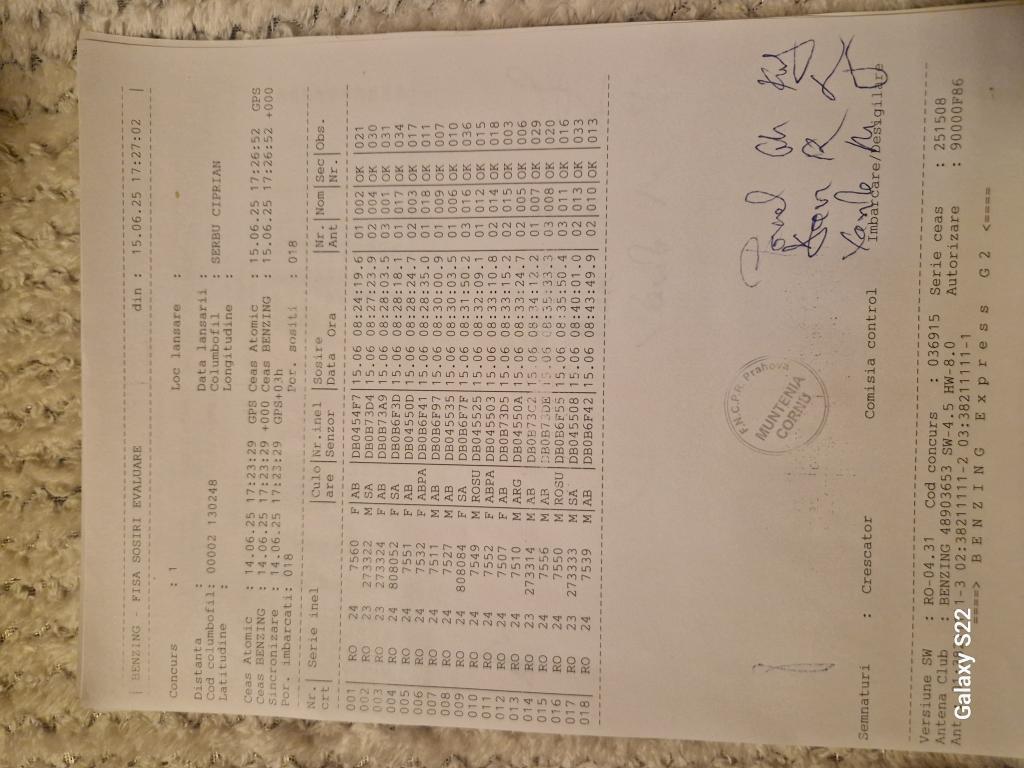 | BENZING - FISA SOSIRI EVALUARE din : 15.06.25 17:27:02 |
Concurs : 1 Loc lansare :
Distanta : Data lansarii :
Cod columbofil: 00002 130248 Columbofil : SERBU CIPRIAN
Latitudine : Longitudine :
Ceas Atomic : 14.06.25 17:23:29 GPS Ceas Atomic : 15.06.25 17:26:52 GPS
Ceas BENZING : 14.06.25 17:23:29 +000 Ceas BENZING : 15.06.25 17:26:52 +000
Sincronizare : 14.06.25 17:23:29 GPS+03h
Por. imbarcati: 018 Por. sositi : 018
Nr.| Serie inel |Culo|Nr.inel |Sosire |Nr.|Nom|Sec|Obs.
crt| |are |Senzor |Data Ora |Ant| |Nr.|
001| RO 24 7560 F AB |DB0454F7|15.06 08:24:19.6 01|002|OK |021
002| RO 23 273322 M SA |DB0B73D4|15.06 08:27:23.9 02|004|OK |030
003| RO 23 273324 F AB |DB0B73A9|15.06 08:28:03.5 03|001|OK |031
004| RO 24 808052 F SA |DB0B6F3D|15.06 08:28:18.1 01|017|OK |034
005| RO 24 7551 F AB |DB04550D|15.06 08:28:24.7 02|003|OK |017
006| RO 24 7532 F ABPA|DB0B6F41|15.06 08:28:35.0 01|018|OK |011
007| RO 24 7511 M AB |DB0B6F97|15.06 08:30:00.9 01|009|OK |007
008| RO 24 7527 M AB |DB045535|15.06 08:30:03.5 01|006|OK |010
009| RO 24 808084 F SA |DB0B6F7F|15.06 08:31:50.2 03|016|OK |036
010| RO 24 7549 M ROSU|DB045525|15.06 08:32:09.1 01|012|OK |015
011| RO 24 7552 F ABPA|DB045503|15.06 08:33:10.8 02|014|OK |018
012| RO 24 7507 F AB |DB0B73D3|15.06 08:33:15.2 02|015|OK |003
013| RO 24 7510 M ARG |DB04550A|15.06 08:33:24.7 02|005|OK |006
014| RO 23 273314 M AB |DB0B73C2|15.06 08:34:12.2 01|007|OK |029
015| RO 24 7556 M AB 15.06 08:35:33.3 03|008|OK |020
016| RO 24 7550 M ROSU|DB0B6F55|15.06 08:35:50.4 03|011|OK |016
017| RO 23 273333 M SA |DB045508|15.06 08:40:01.0 02|013|OK |033
018| RO 24 7539 M AB |DB0B6F42|15.06 08:43:49.9 02|010|OK |013
F.N.C.P.R. Prahova
MUNTENIA
CORNU
Semnaturi : Crescator Comisia control Imbarcare/Desigilare
Versiune SW : RO-04.31 Cod concurs : 036915 Serie ceas : 251508
Antena Club : BENZING 48903653 SW-4.5 HW-8.0 Autorizare : 90000F86
1-3 02:38211111-2 03:38211111-1
====> B E N Z I N G E X p r e s s G 2 <====
Galaxy S22